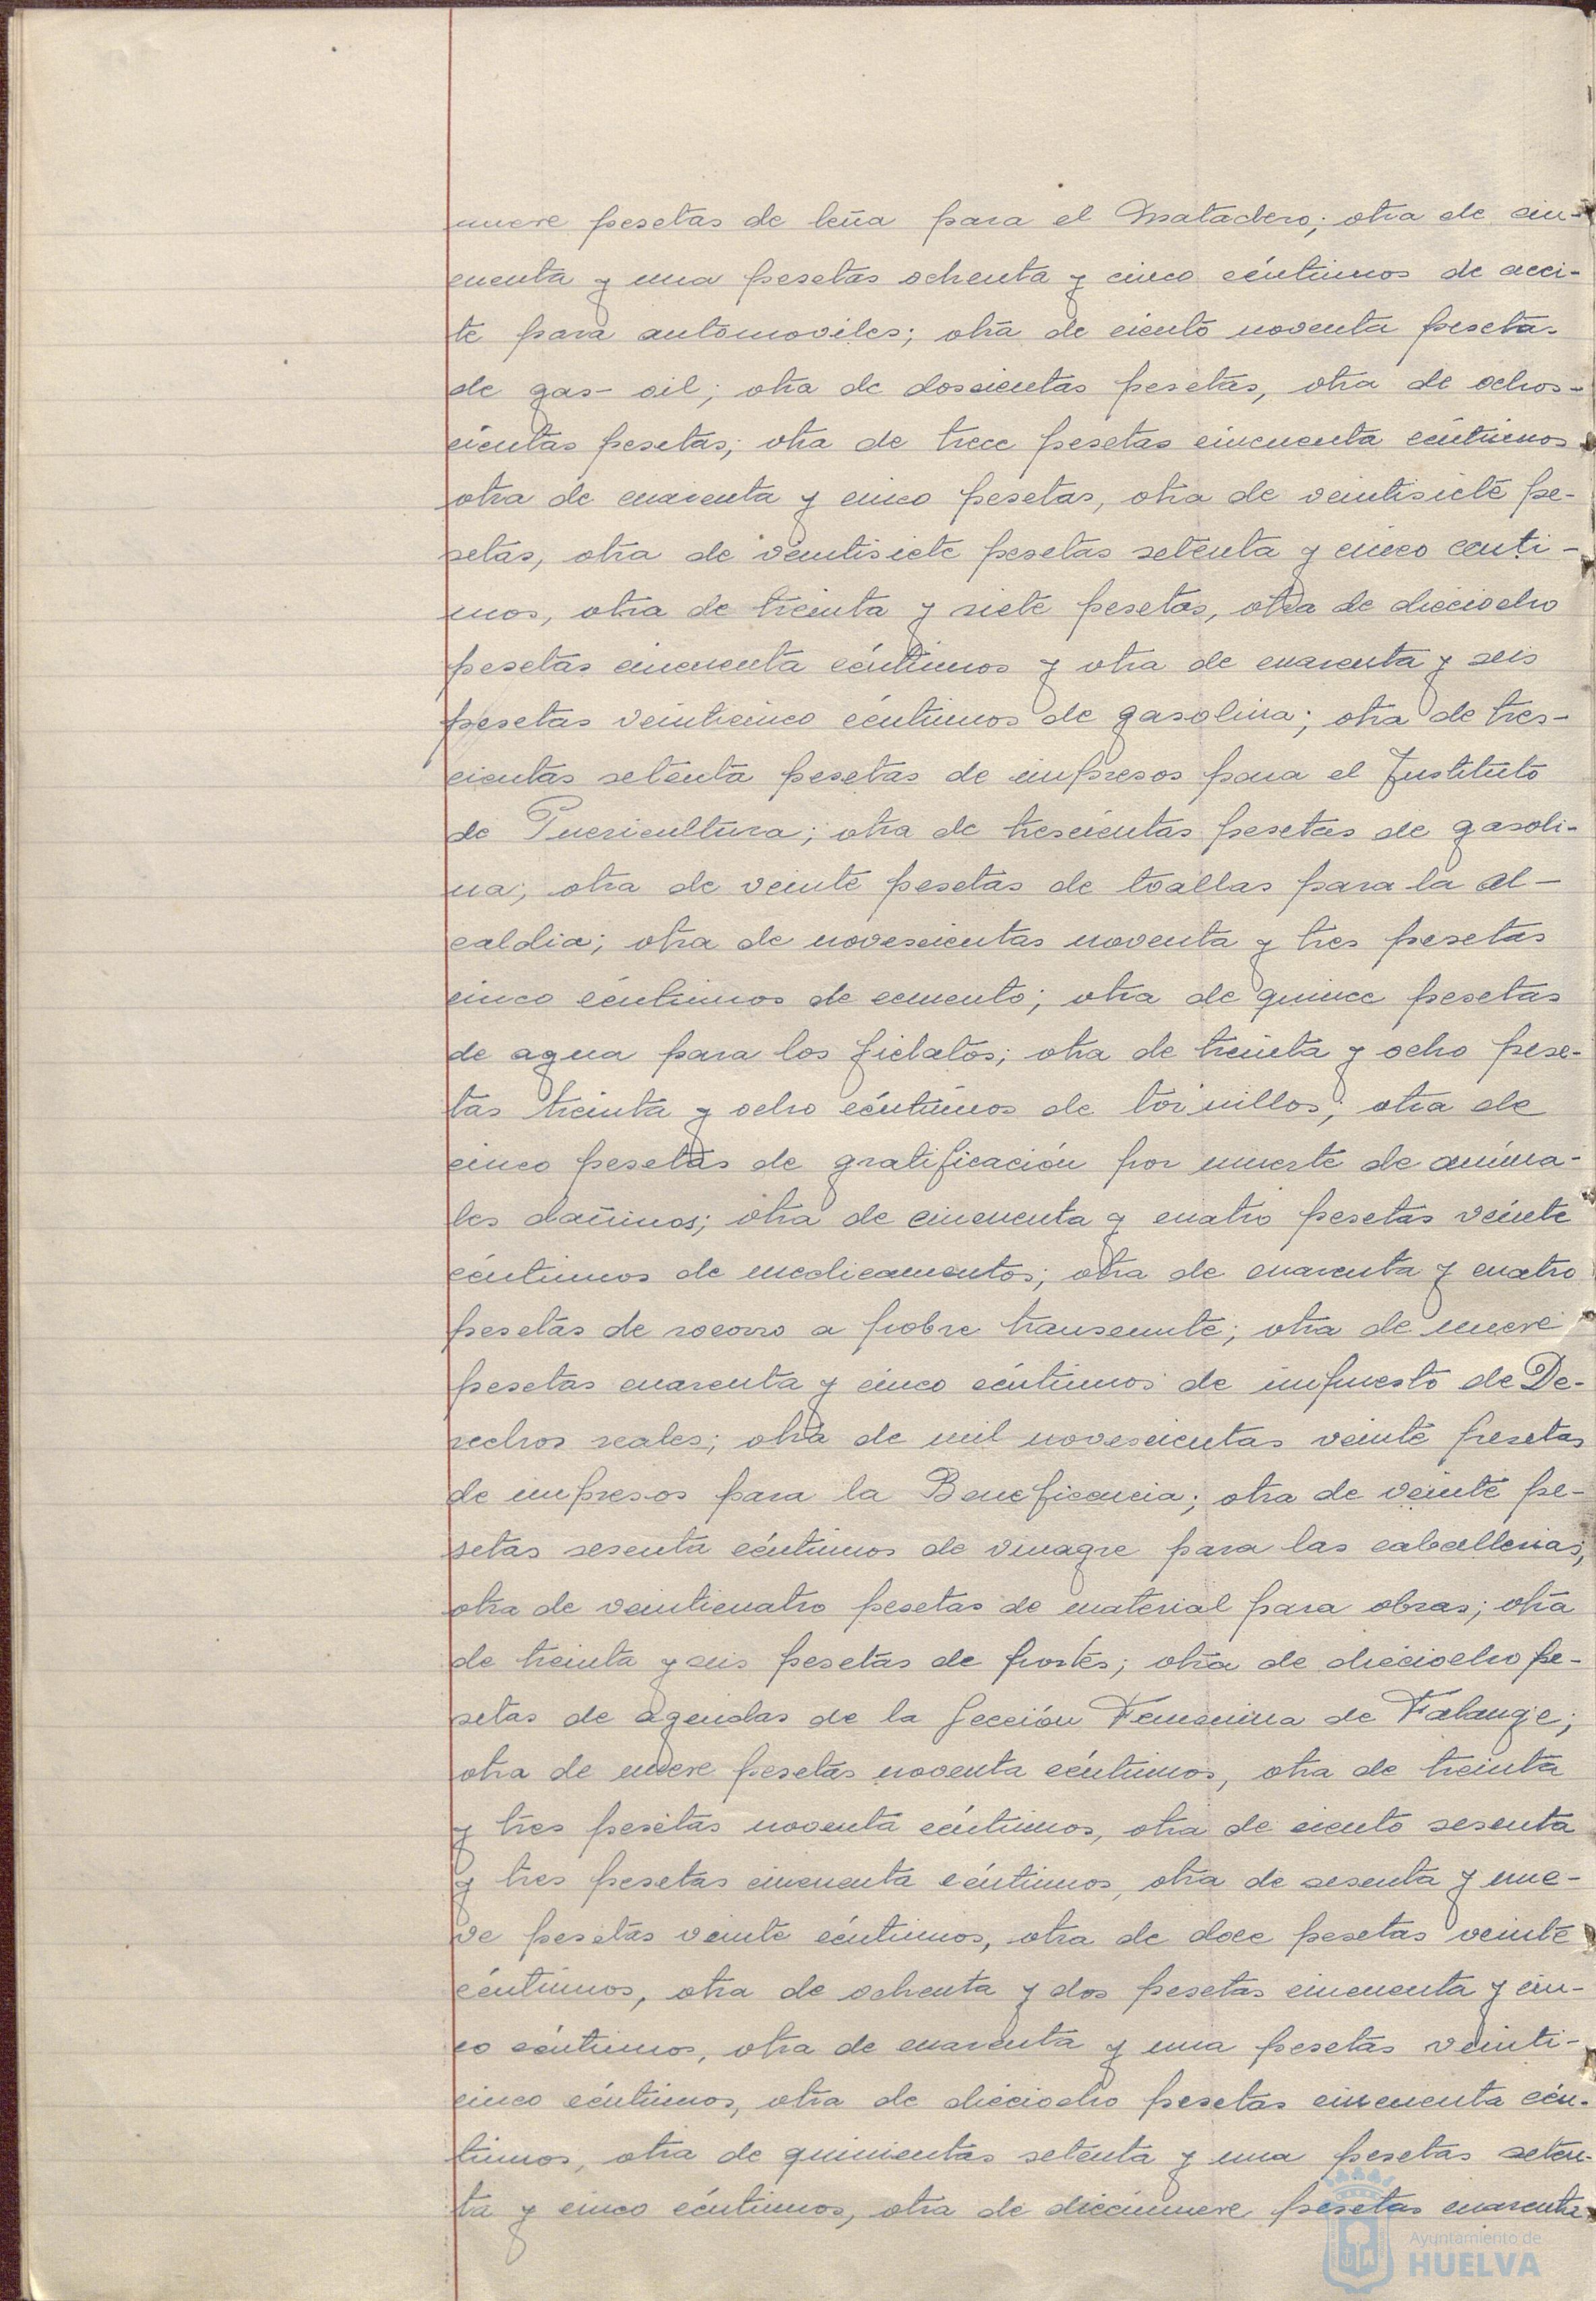 nueve pesetas de leña para el Matadero; otra de cin-
cuenta y una pesetas ochenta y cinco céntimos de acei-
te para automoviles; otra de ciento noventa pesetas
de gas-oil; otra de doscientas pesetas, otra de ochos-
cientas pesetas; otra de trece pesetas cincuenta céntimos
otra de cuarenta y cinco pesetas, otra de veintisiete pe-
setas, otra de veintisiete pesetas setenta y cinco centi-
mos, otra de treinta y siete pesetas, otra de dieciocho
pesetas cincuenta céntimos y otra de cuarenta y seis
pesetas veinticinco céntimos de gasolina; otra de tres-
cientas setenta pesetas de impresos para el Instituto
de Puericultura; otra de trescientas pesetas de gasoli-
na; otra de veinte pesetas de toallas para la Al-
caldia; otra de novescientas noventa y tres pesetas
cinco céntimos de cemento; otra de quince pesetas
de agua para los fielatos; otra de treinta y ocho pese-
tas treinta y ocho céntimos de tornillos; otra de
cinco pesetas de gratificación por muerte de anima-
les dañinos; otra de cincuenta y cuatro pesetas veinte
céntimos de medicamentos; otra de cuarenta y cuatro
pesetas de socorro a pobre transeunte; otra de nueve
pesetas cuarenta y cinco céntimos de impuesto de De-
rechos reales; otra de mil novescientas veinte pesetas
de impresos para la Beneficencia; otra de veinte pe-
setas sesenta céntimos de vinagre para las caballerias;
otra de veinticuatro pesetas de material para obras; otra
de treinta y seis pesetas de portes; otra de dieciocho pe-
setas de agendas de la Sección Femenina de Falange;
otra de nueve pesetas noventa céntimos, otra de treinta
y tres pesetas noventa céntimos, otra de ciento sesenta
y tres pesetas cincuenta céntimos, otra de sesenta y nue-
ve pesetas veinte céntimos, otra de doce pesetas veinte
céntimos, otra de ochenta y dos pesetas cincuenta y cin-
co céntimos, otra de cuarenta y una pesetas veinti-
cinco céntimos, otra de dieciocho pesetas cincuenta cén-
timos, otra de quinientas setenta y una pesetas seten-
ta y cinco céntimos, otra de diecinueve pesetas cuarenta
Ayuntamiento de
HUELVA